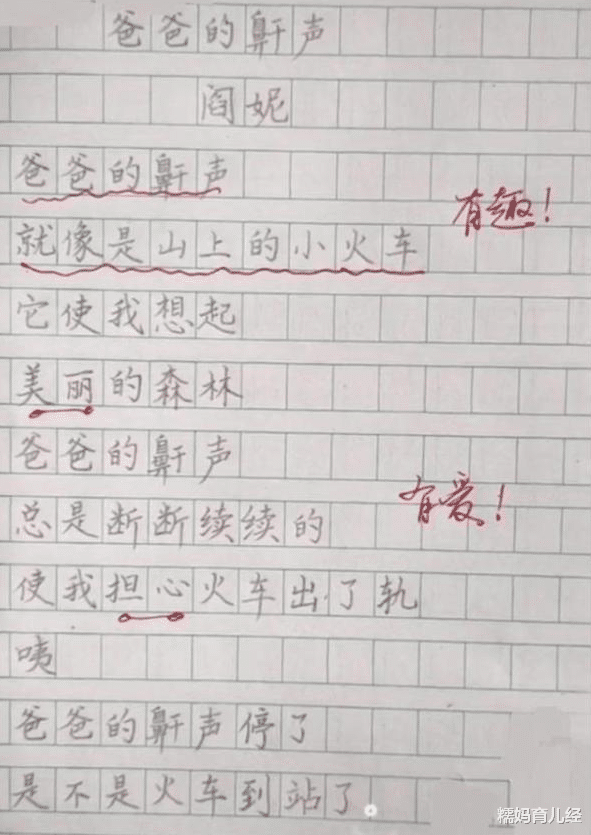 爸爸的鼾声
阎妮
爸爸的鼾声
有趣！
就像是山上的小火车
它使我想起
美丽的森林
爸爸的鼾声
有爱！
总是断断续续的
使我担心火车出了轨
咦
爸爸的鼾声停了
是不是火车到站了。
糯妈育儿经